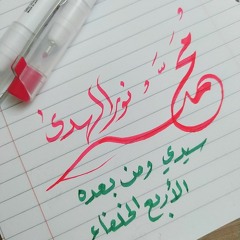 محمَّد نور الهدى
سيدي ومن بعده
الأربع الخلفاء